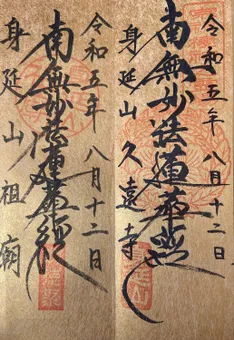 令和五年 八月十二日
南無妙法蓮華経
身延山久遠寺
令和五年 八月十二日
南無妙法蓮華経
身延山祖廟